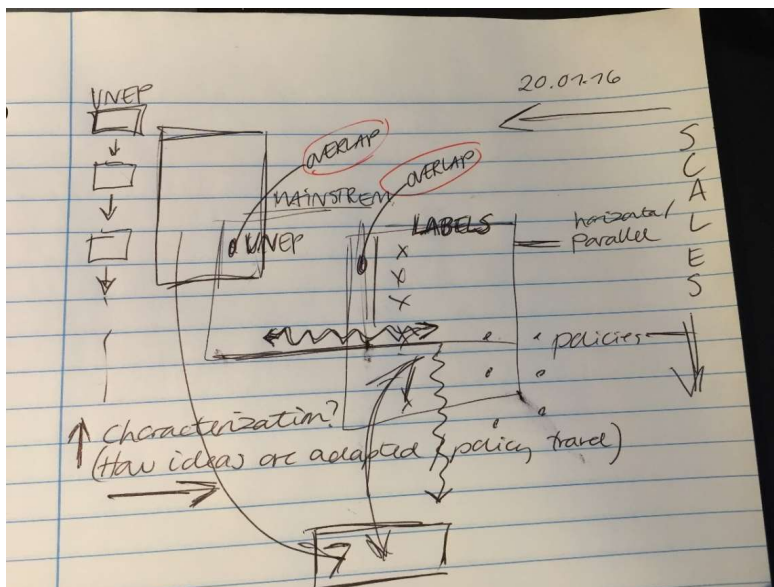 20.01.16
UNEP
SCALES
OVERLAP
OVERLAP
MAINSTREM
LABELS
horizontal/
parallel
UNEP
x
x
x
policies
x
Characterization?
(How ideas are adapted / policy travel)